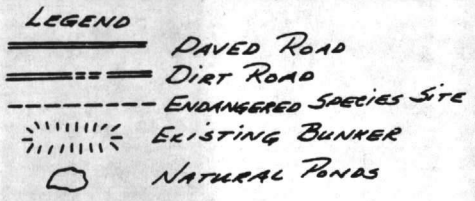 LEGEND
PAVED ROAD
DIRT ROAD
ENDANGERED SPECIES SITE
EXISTING BUNKER
NATURAL PONDS